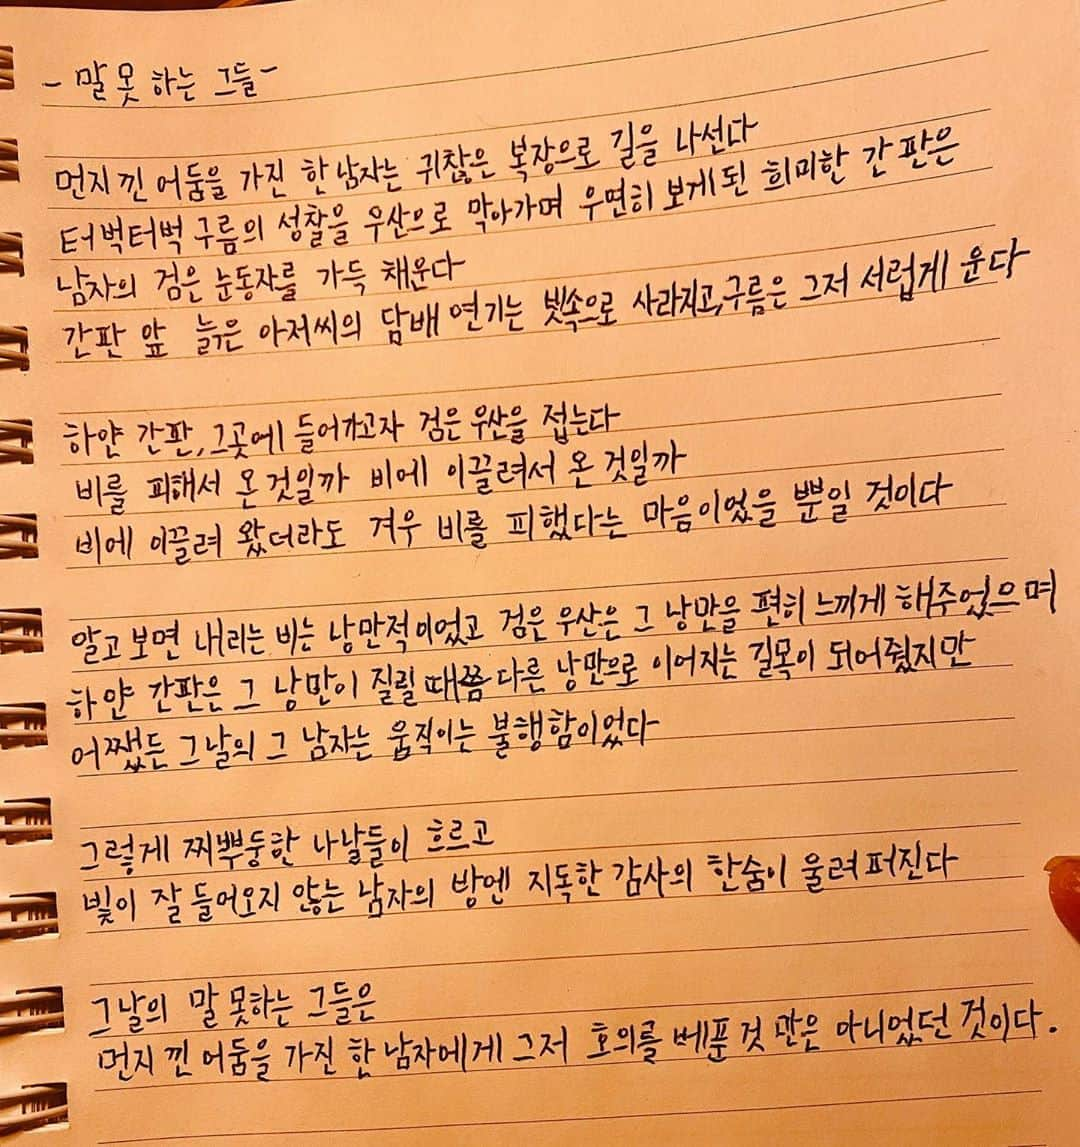 - 말 못 하는 그들 -
먼지 낀 어둠을 가진 한 남자는 귀찮은 복장으로 길을 나선다
터벅터벅 구름의 성찰을 우산으로 막아가며 우연히 보게 된 희미한 간판은
남자의 검은 눈동자를 가득 채운다
간판 앞 늙은 아저씨의 담배 연기는 빗속으로 사라지고, 구름은 그저 서럽게 운다
하얀 간판, 그곳에 들어가고자 검은 우산을 접는다
비를 피해서 온 것일까 비에 이끌려서 온 것일까
비에 이끌려 왔더라도 겨우 비를 피했다는 마음이었을 뿐일 것이다
알고 보면 내리는 비는 낭만적이었고 검은 우산은 그 낭만을 편히 느끼게 해주었으며
하얀 간판은 그 낭만이 질릴 때쯤 다른 낭만으로 이어지는 길목이 되어줬지만
어쨌든 그날의 그 남자는 움직이는 불행함이었다
그렇게 찌뿌둥한 나날들이 흐르고
빛이 잘 들어오지 않는 남자의 방엔 지독한 감사의 한숨이 울려 퍼진다
그날의 말 못하는 그들은
먼지 낀 어둠을 가진 한 남자에게 그저 호의를 베푼 것 만은 아니었던 것이다.